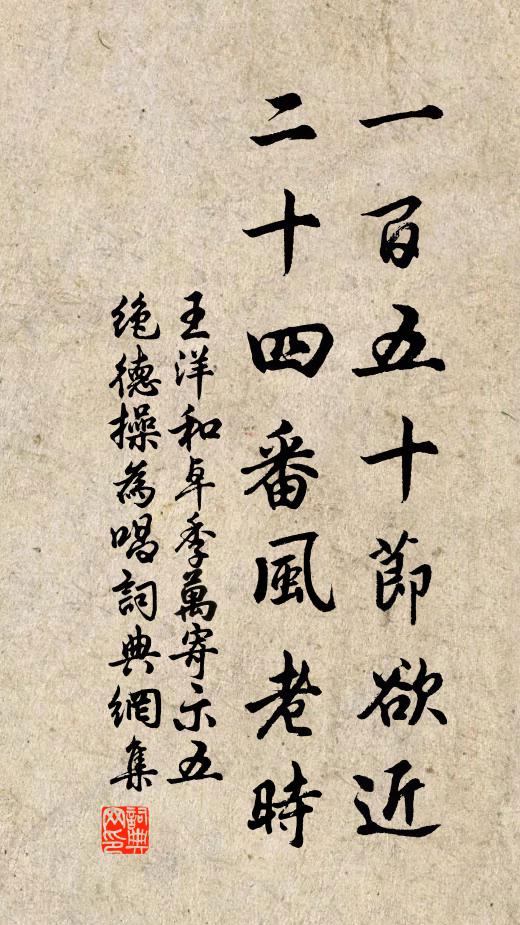 一百五十節欲近
二十四番風老時
王洋和卓季萬寄示五
絶德操為唱詞典網集
詞典
网印